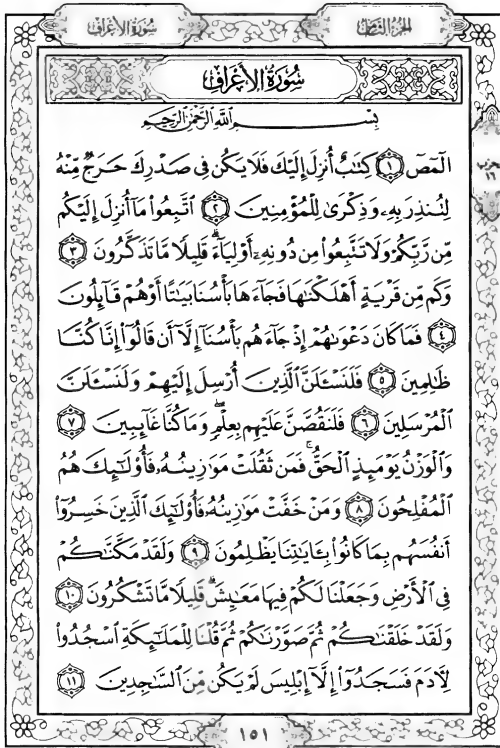 سُورَةُ الأَعْرَافِ
الجُزْءُ الثَّامِنُ
سُورَةُ الأَعْرَافِ
بِسْمِ ٱللَّهِ ٱلرَّحْمَٰنِ ٱلرَّحِيمِ
الٓمٓصٓ ﴿١﴾ كِتَٰبٌ أُنزِلَ إِلَيْكَ فَلَا يَكُن فِى صَدْرِكَ حَرَجٌ مِّنْهُ
لِتُنذِرَ بِهِۦ وَذِكْرَىٰ لِلْمُؤْمِنِينَ ﴿٢﴾ ٱتَّبِعُوا۟ مَآ أُنزِلَ إِلَيْكُم
مِّن رَّبِّكُمْ وَلَا تَتَّبِعُوا۟ مِن دُونِهِۦٓ أَوْلِيَآءَ ۗ قَلِيلًا مَّا تَذَكَّرُونَ ﴿٣﴾
وَكَم مِّن قَرْيَةٍ أَهْلَكْنَٰهَا فَجَآءَهَا بَأْسُنَا بَيَٰتًا أَوْ هُمْ قَآئِلُونَ
﴿٤﴾ فَمَا كَانَ دَعْوَىٰهُمْ إِذْ جَآءَهُم بَأْسُنَآ إِلَّآ أَن قَالُوٓا۟ إِنَّا كُنَّا
ظَٰلِمِينَ ﴿٥﴾ فَلَنَسْـَٔلَنَّ ٱلَّذِينَ أُرْسِلَ إِلَيْهِمْ وَلَنَسْـَٔلَنَّ
ٱلْمُرْسَلِينَ ﴿٦﴾ فَلَنَقُصَّنَّ عَلَيْهِم بِعِلْمٍ ۖ وَمَا كُنَّا غَآئِبِينَ ﴿٧﴾
وَٱلْوَزْنُ يَوْمَئِذٍ ٱلْحَقُّ ۚ فَمَن ثَقُلَتْ مَوَٰزِينُهُۥ فَأُو۟لَٰٓئِكَ هُمُ
ٱلْمُفْلِحُونَ ﴿٨﴾ وَمَنْ خَفَّتْ مَوَٰزِينُهُۥ فَأُو۟لَٰٓئِكَ ٱلَّذِينَ خَسِرُوٓا۟
أَنفُسَهُم بِمَا كَانُوا۟ بِـَٔايَٰتِنَا يَظْلِمُونَ ﴿٩﴾ وَلَقَدْ مَكَّنَّٰكُمْ
فِى ٱلْأَرْضِ وَجَعَلْنَا لَكُمْ فِيهَا مَعَٰيِشَ ۗ قَلِيلًا مَّا تَشْكُرُونَ ﴿١٠﴾
وَلَقَدْ خَلَقْنَٰكُمْ ثُمَّ صَوَّرْنَٰكُمْ ثُمَّ قُلْنَا لِلْمَلَٰٓئِكَةِ ٱسْجُدُوا۟
لِـَٔادَمَ فَسَجَدُوٓا۟ إِلَّآ إِبْلِيسَ لَمْ يَكُن مِّنَ ٱلسَّٰجِدِينَ ﴿١١﴾
١٥١